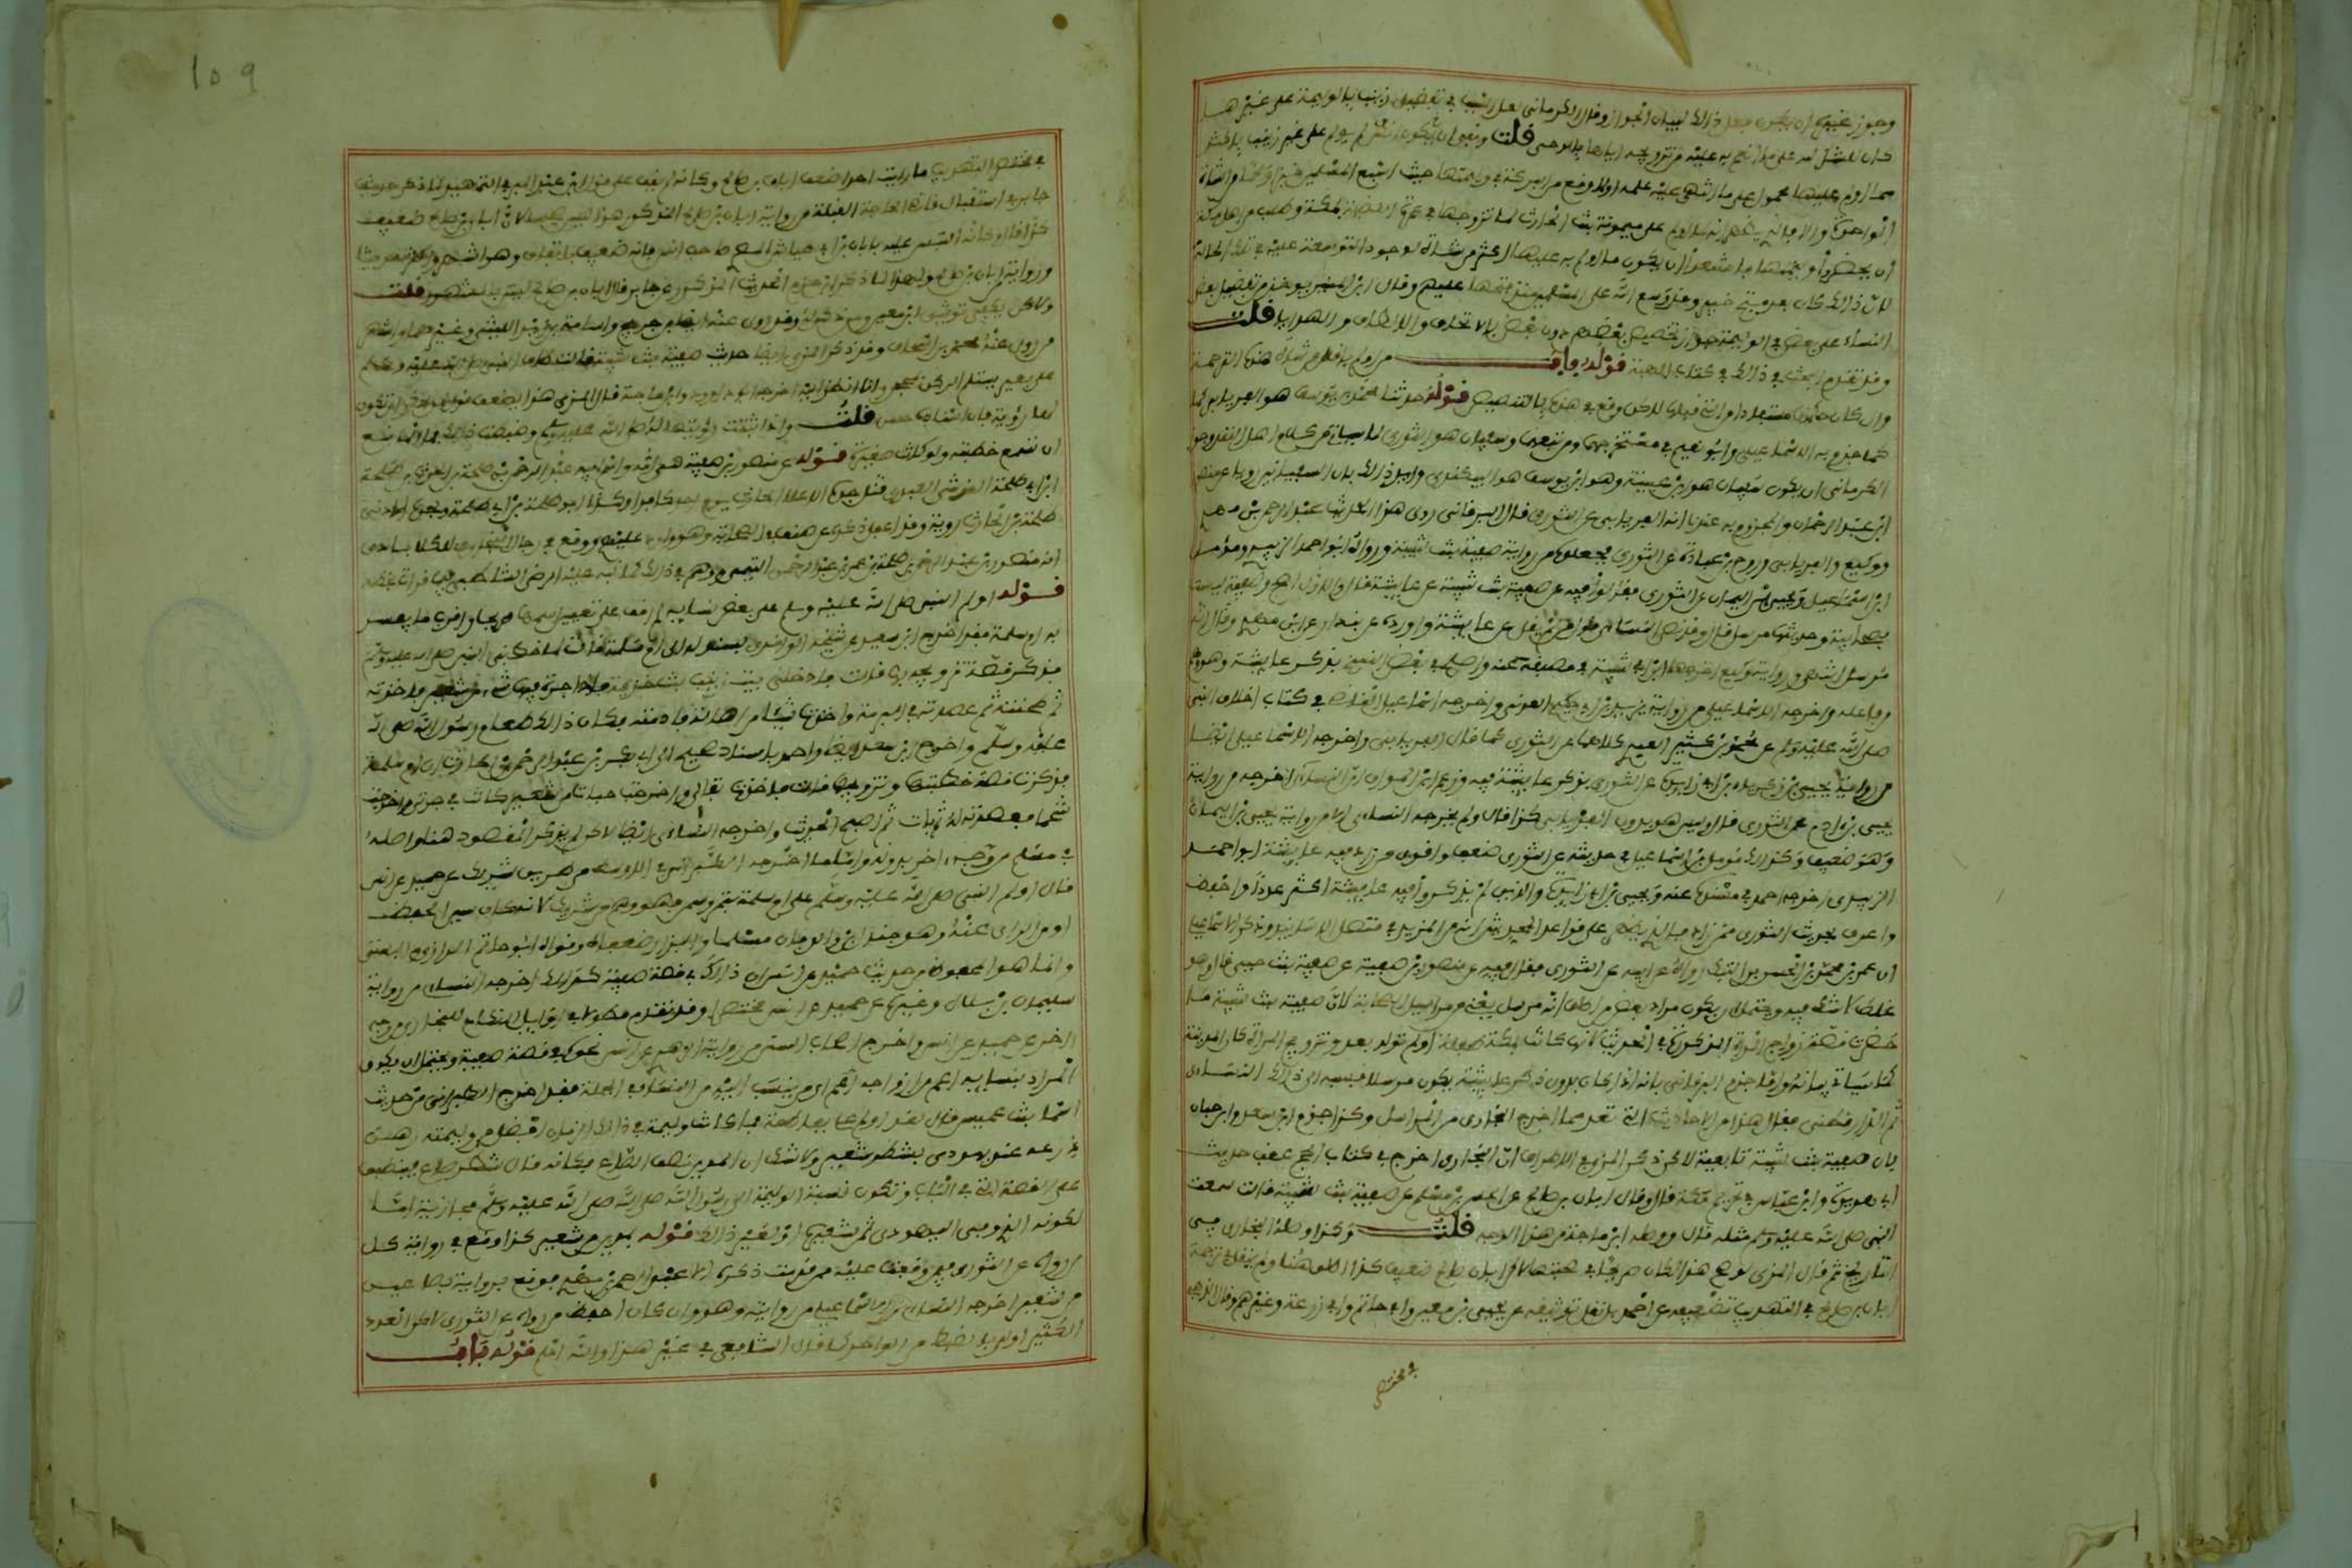 وجوز غيره ان يكون فعل ذالك لبيان الجواز وقال الكرماني لعل السبب في تفضيل زينب بالوليمة على غيرها
كان للشكر لله على ما انعم به عليه من تزويجه اياها بالوحي قلت ونفي ان يكون انس لم يولم على غير زينب باكثر
مما اولم عليها محمول على ما انتهى اليه علمه او لما وقع من البركة في وليمتها حيث اشبع المسلمين خبزا ولحما من الشاة
الواحدة والا فالذي يظهر انه لما اولم على ميمونة بنت الحارث لما تزوجها في عمرة القضية بمكة وطلب من اهل مكة
ان يحضروا وليمتها فامتنعوا ان يكون ما اولم به عليها اكثر من شاة لوجود التوسعة عليه في تلك الحالة
لان ذالك كان بعد فتح خيبر وقد وسع الله على المسلمين منذ فتحها عليهم وقال ابن المنير يوخذ من تفضيل بعض
النساء على بعض في الوليمة جواز تخصيص بعضهم دون بعض بالاتحاف والالطاف والهدايا قلت
وقد تقدم البحث في ذالك في كتاب الهبة قوله باب من اولم باقل من شاة هذه الترجمة
وان كان حكمها مستفادا من التي قبلها لاكن وقع في هذه بالتنصيص قوله حدثنا محمد بن يوسف هو الفريابي كما
كما جزم به الاسماعيلي وابو نعيم في مستخرجيهما ومن تبعهما وسفيان هو الثوري لما سياتي من كلام اهل النقد وجوز
الكرماني ان يكون سفيان هو ابن عيينة وهو ابن يوسف هو البيكندي وايد ذالك بان السفيانين رويا عن منصور
ابن عبد الرحمان والمجزوم به عندنا انه الفريابي عن الثوري قال البرقاني روى هذا الحديث عبد الرحمن بن مهدي
ووكيع والفريابي وروح بن عبادة عن الثوري فجعلوه من رواية صفية بنت شيبة ورواه ابو احمد الزبيري ومؤمل
ابن اسماعيل ويحيى بن اليمان عن الثوري فقالوا فيه عن صفية بنت شيبة عن عايشة قال والاول اصح وصفية ليست
بصحابية وحديثها مرسل قال وقد نصر النسائي قول من لم يقل عن عايشة واورده عن بندار عن ابن مهدي وقال انه
مرسل انتهى ورواية وكيع اخرجها ابن ابي شيبة في مصنفه عنه واصلح في بعض النسخ بذكر عايشة وهو وهم
من فاعله واخرجه الاسماعيلي من رواية يزيد بن ابي حكيم العدني واخرجه اسماعيل القاضي في كتاب اخلاق النبي
صلى الله عليه وسلم عن محمد بن كثير العبدي كلاهما عن الثوري كما قال الفريابي واخرجه الاسماعيلي ايضا
من رواية يحيى بن زكرياء بن ابي زايدة عن الثوري بذكر عايشة فيه وزعم ابن المواق ان النسائي اخرجه من رواية
يحيى بن ءادم عن الثوري قال وليس هو بدون الفريابي كذا قال ولم يخرجه النسائي الا من رواية يحيى بن اليمان
وهو ضعيف وكذالك مومل بن اسماعيل في حديثه عن الثوري ضعف واقوى من زاد فيه عايشة ابو احمد
الزبيري اخرجه احمد في مسنده عنه ويحيى بن ابي زايدة والذين لم يذكروا فيه عايشة اكثر عددا واحفظ
واعرف بحديث الثوري ممن زاد فالذي يظهر على قواعد المحدثين انه من المزيد في متصل الاسانيد وذكر الاسماعيلي
ان عمر بن محمد بن الحسن بن التل رواه عن ابيه عن الثوري فقال فيه عن منصور بن صفية عن صفية بنت حيي قال وهو
غلط لا شك فيه ويحتمل ان يكون مراد بعض من اطلق انه مرسل يعني من مراسيل الصحابة لان صفية بنت شيبة ما
حضرت قصة زواج المرأة المذكورة في الحديث لانها كانت بمكة طفلة او لم تولد بعد وتزويج المرأة كان بالمدينة
كما سياتي بيانه واما جزم البرقاني بانه اذا كان بدون ذكر عايشة يكون مرسلا فسبقه الى ذالك النساءي
ثم الدارقطني فقال هذا من الاحاديث التي تعد مما اخرج البخاري من المراسل وكذا جزم ابن سعد وابن حبان
بان صفية بنت شيبة تابعية لاكن ذكر المزي في الاطراف ان البخاري اخرج في كتاب الحج عقب حديث
ابي هريرة وابن عباس في تحريم مكة قال وقال ابان بن صالح عن الحسن بن مسلم عن صفية بنت شيبة قالت سمعت
النبي صلى الله عليه وسلم مثله قال ووصله ابن ماجة من هذا الوجه قلت وكذا وصله البخاري في
التاريخ ثم قال المزي لو صح هذا لكان صريحا في صحبتها لاكن ابان بن صالح ضعيف كذا اطلق هنا ولم ينقل في ترجمة
ابان بن صالح في التهذيب تضعيفه عن احد بل نقل توثيقه عن يحيى بن معين وابي حاتم وابي زرعة وغيرهم وقال الذهبي
في مختصر
109
في مختصر التهذيب ما رايت احدا ضعف ابان بن صالح وكانه لم يقف على قول ابن عبد البر في التمهيد لما ذكر حديث
جابر في استقبال قاضي الحاجة القبلة من رواية ابان بن صالح المذكور هذا ليس صحيحا لان ابان بن صالح ضعيف
كذا قال وكانه التبس عليه بابان بن ابي عياش البصري صاحب انس فانه ضعيف باتفاق وهو اشهر واكثر حديثا
ورواية من ابان بن صالح ولهذا لما ذكر ابن حزم الحديث المذكور عن جابر قال ابان بن صالح ليس بالمشهور قلت
ولاكن يكفي توثيق ابن معين ومن ذكر له وقد روى عنه ايضا ابن جريج واسامة بن زيد الليثي وغيرهما واشهر
من روى عنه محمد بن اسحاق وقد ذكر المزي ايضا حديث صفية بنت شيبة قالت طاف النبي صلى الله عليه وسلم
على بعير يستلم الركن بمحجن وانا انظر اليه اخرجه ابو داوود وابن ماجة قال المزي هذا يضعف قول من انكر ان تكون
لها رؤية فان اسناده حسن قلت واذا ثبتت رؤيتها له صلى الله عليه وسلم وضبطت ذالك فما المانع
ان تسمع خطبته ولو كانت صغيرة قوله عن منصور بن صفية هي امه واسم ابيه عبد الرحمن بن طلحة بن الحارث بن طلحة
ابن ابي طلحة القرشي العبدري قتل جده الاعلا الحارث يوم احد كافرا وكذا ابوه طلحة بن ابي طلحة ولجده الادنى
طلحة بن الحارث روية وقد اغفل ذكره من صنف في الصحابة وهو وارد عليهم ووقع في رجال البخاري للكلاباذي
انه منصور بن عبد الرحمن بن طلحة بن عمر بن عبد الرحمن التيمي ووهم في ذالك كما نبه عليه الرضي الشاطبي فيما قرات بخطه
قوله اولم النبي صلى الله عليه وسلم على بعض نسايه لم اقف على تعيين اسمها صريحا واقرب ما يفسر
به ام سلمة فقد اخرج ابن سعد عن شيخه الواقدي بسند له الى ام سلمة قالت لما خطبني النبي صلى الله عليه وسلم
فذكر قصة تزويجه بها قالت فادخلني بيت زينب بنت خزيمة فاذا جرة فيها شيء من شعير فاخذته
ثم طحنته ثم عصدته في البرمة واخذت شيئا من اهالة فادمته فكان ذالك طعام رسول الله صلى الله
عليه وسلم واخرج ابن سعد ايضا واحمد باسناد صحيح الى ابي بكر بن عبد الرحمن بن الحارث ان ام سلمة
فذكرت قصة خطبتها وتزويجها قالت فاخذت ثفالي واخرجت حبات من شعير كانت في جرتي واخرجت
شحما فعصدته له ثم بات ثم اصبح الحديث واخرجه النساءي ايضا لاكن لم يذكر المقصود هنا واصله
في مسلم من وجه ءاخر بدونه واما ما اخرجه الطبراني في الاوسط من طريق شريك عن حميد عن انس
قال اولم النبي صلى الله عليه وسلم على ام سلمة بتمر وسمن فهو وهم من شريك لانه كان سيئ الحفظ
او من الراوي عنه وهو جندل بن والق فان مسلما والبزار ضعفاه وقواه ابو حاتم الرازي والبستي
وانما هو المحفوظ من حديث حميد عن انس ان ذالك في قصة صفية كذالك اخرجه النسائي من رواية
سليمان بن بلال وغيره عن حميد عن انس مختصرا وقد تقدم مطولا في اوايل النكاح للبخاري من وجه
ءاخر عن حميد عن انس واخرج اصحاب السنن من رواية الزهري عن انس نحوه في قصة صفية ويحتمل ان يكون
المراد بنسايه اعم من ازواجه اي من ينسب اليه من النساء في الجملة فقد اخرج الطبراني من حديث
اسما بنت عميس قالت لقد اولم علي بفاطمة فما كانت وليمة في ذالك الزمان افضل من وليمته رهن
درعه عند يهودي بشطر شعير ولا شك ان المدين نصف الصاع فكانه قال شطر صاع فينطبق
على القصة التي في الباب وتكون نسبة الوليمة الى رسول الله صلى الله عليه وسلم مجازية اما
لكونه الذي وفى اليهودي ثمن شعيره او لغير ذالك قوله بمدين من شعير كذا وقع في رواية كل
من رواه عن الثوري فيما وقفت عليه ممن قدمت ذكره الا عبد الرحمن بن مهدي فوقع في روايته بصاعين
من شعير اخرجه النسائي والاسماعيلي من روايته وهو وان كان احفظ من رواه عن الثوري لاكن العدد
الكثير اولى بالضبط من الواحد كما قال الشافعي في غير هذا والله اعلم قوله باب